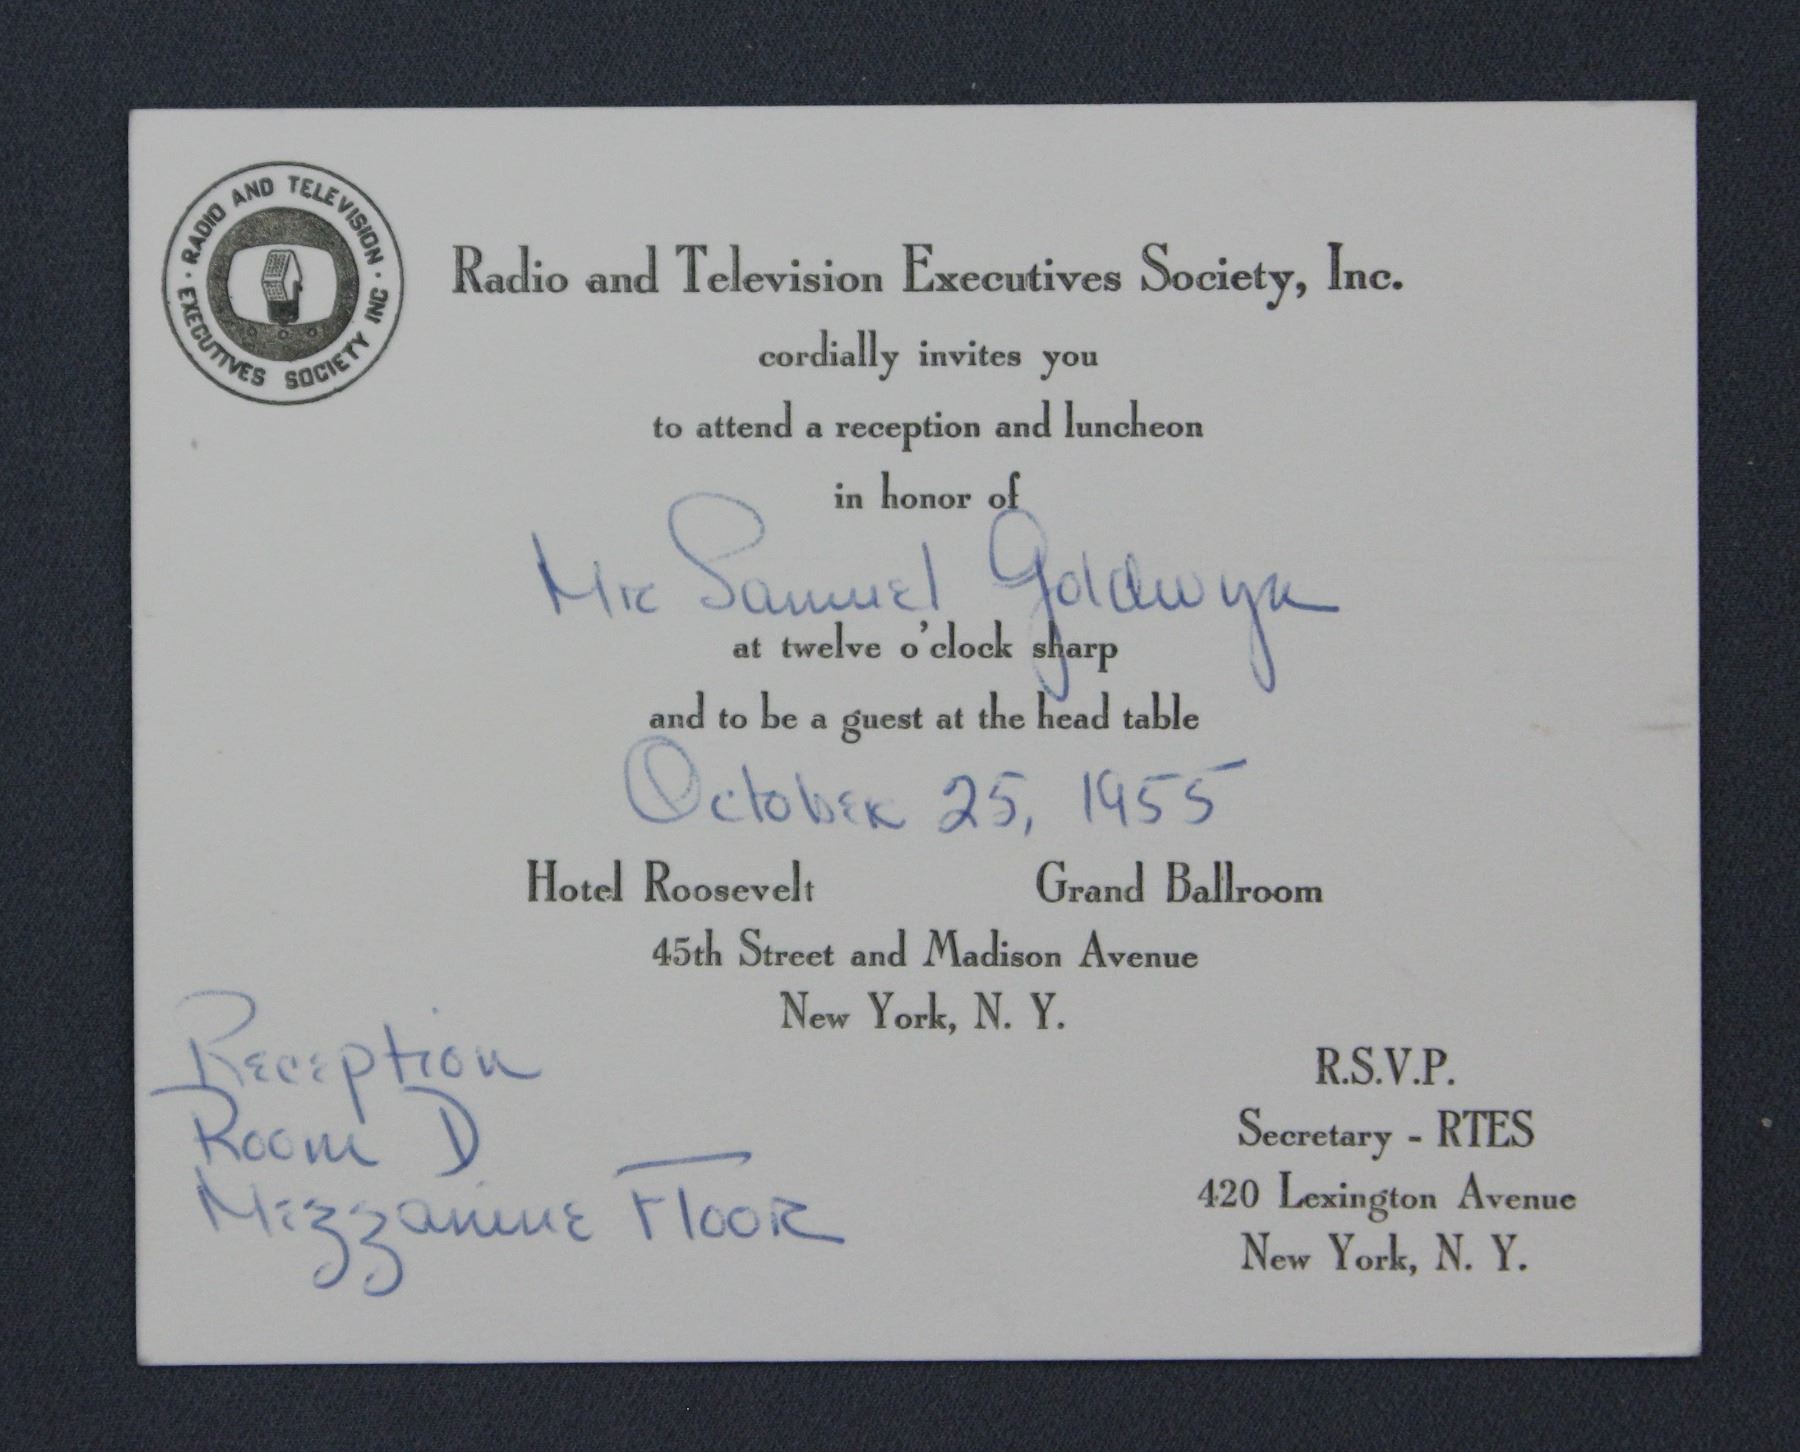 · RADIO AND TELEVISION ·
EXECUTIVES SOCIETY INC
Radio and Television Executives Society, Inc.
cordially invites you
to attend a reception and luncheon
in honor of
Mr Samuel Goldwyn
at twelve o'clock sharp
and to be a guest at the head table
October 25, 1955
Hotel Roosevelt Grand Ballroom
45th Street and Madison Avenue
New York, N. Y.
Reception
Room D
Mezzanine Floor
R.S.V.P.
Secretary - RTES
420 Lexington Avenue
New York, N. Y.